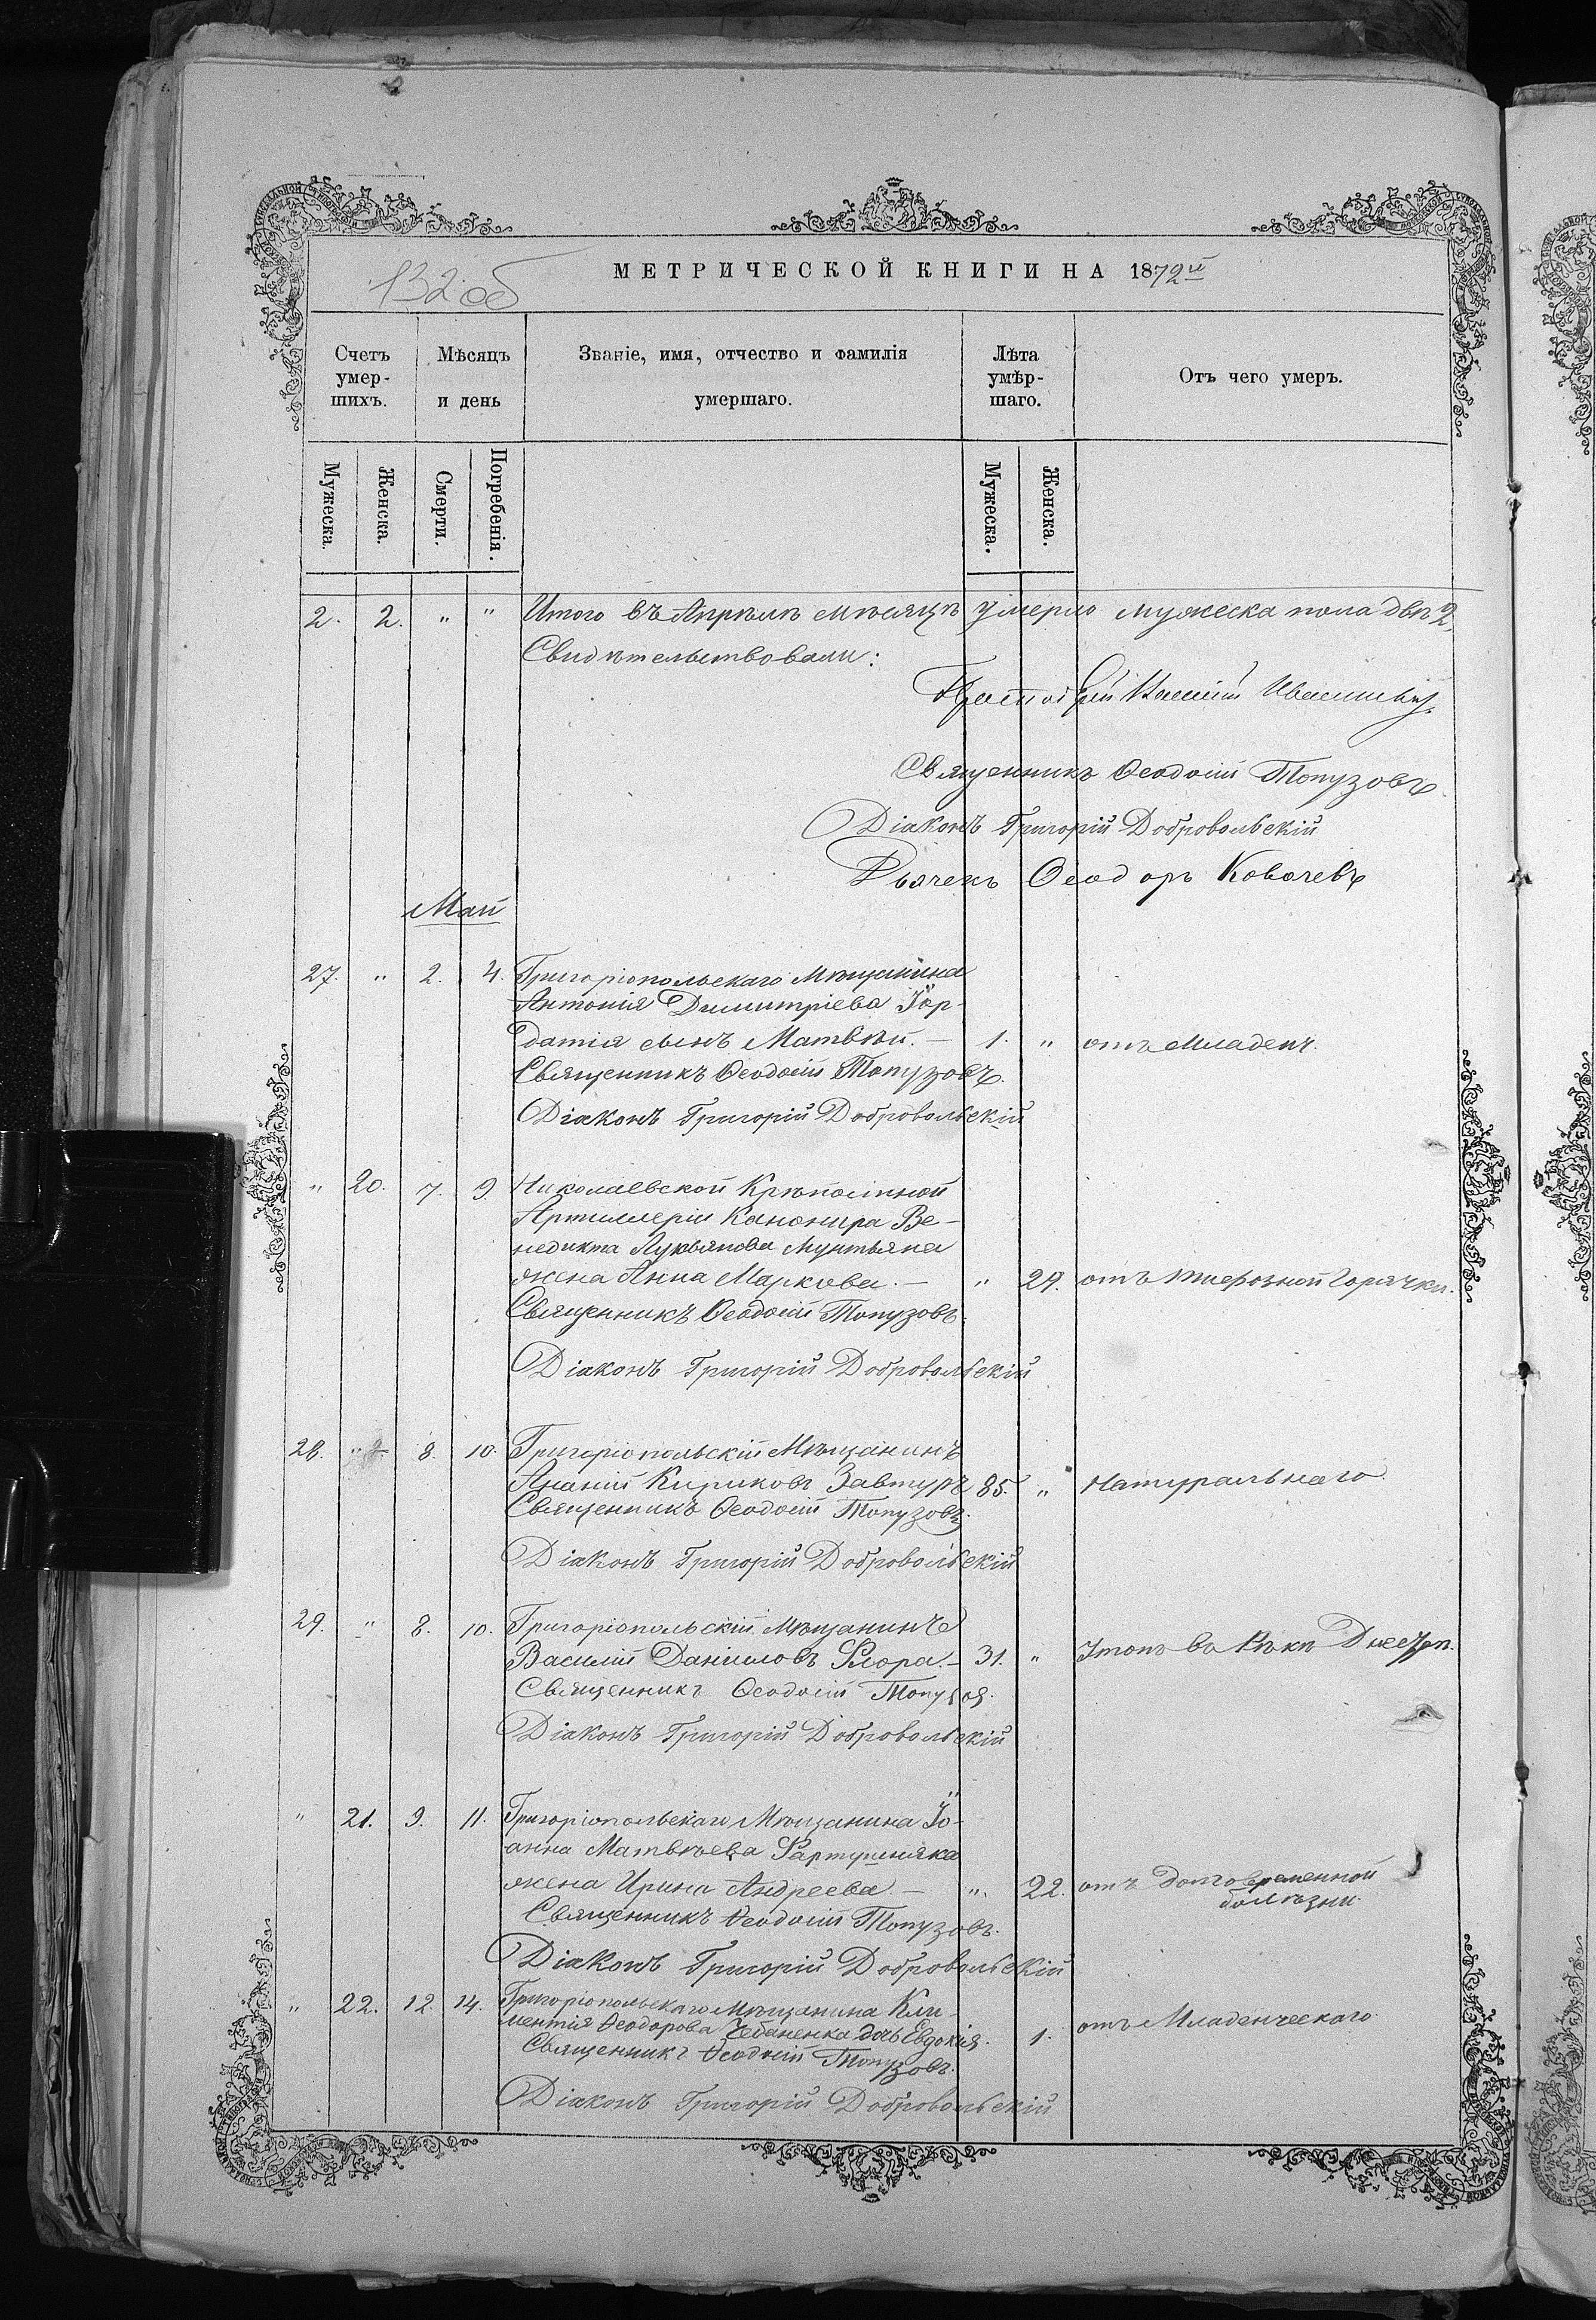 132 об
МЕТРИЧЕСКОЙ КНИГИ НА 1872й
Счетъ умер-шихъ.
Мѣсяцъ и день
Званіе, имя, отчество и фамилія умершаго.
Лѣта умѣр-шаго.
Отъ чего умеръ.
Мужеска. Женска. Смерти. Погребенія. Мужеска. Женска.
2. 2. " " Итого въ Апрѣлѣ мѣсяцѣ умерло мужеска пола двѣ 2,
Свидѣтельствовали:
Священникъ Ѳеодосій Топузовъ
Діаконъ Григорій Добровольскій
Дьячекъ Ѳеодоръ Ковачевъ
Май
27. " 2. 4. Григоріопольскаго Мѣщанина
Антонія Димитріева Іор-
датія сынъ Матвѣй. — 1. " отъ Младенч.
Священникъ Ѳеодосій Топузовъ.
Діаконъ Григорій Добровольскій
" 20. 7. 9. Николаевской Крѣпостной
Артиллеріи Канонира Ве-
недикта Лукьянова Мунтьяна
жена Анна Маркова. — " 29. отъ тифозной Горячки.
Священникъ Ѳеодосій Топузовъ.
Діаконъ Григорій Добровольскій
28. " 8. 10. Григоріопольскій Мѣщанинъ
Ананій Кириковъ Завтуръ 85. " Натуральнаго
Священникъ Ѳеодосій Топузовъ.
Діаконъ Григорій Добровольскій
29. " 8. 10. Григоріопольскій Мѣщанинъ
Василій Даніиловъ Флора. — 31. " Утопъ въ Рѣкѣ Днестрѣ.
Священникъ Ѳеодосій Топузов.
Діаконъ Григорій Добровольскій
" 21. 9. 11. Григоріопольскаго Мѣщанина Іо-
анна Матвѣева Фартушняка
жена Ирина Андреева — ". 22. отъ долговременной
болѣзни.
Священникъ Ѳеодосій Топузовъ.
Діаконъ Григорій Добровольскій
" 22. 12. 14. Григоріопольскаго Мѣщанина Кли-
ментія Ѳеодорова Чебаненка дочь Евдокія. 1. отъ Младенческаго
Священникъ Ѳеодосій Топузовъ.
Діаконъ Григорій Добровольскій